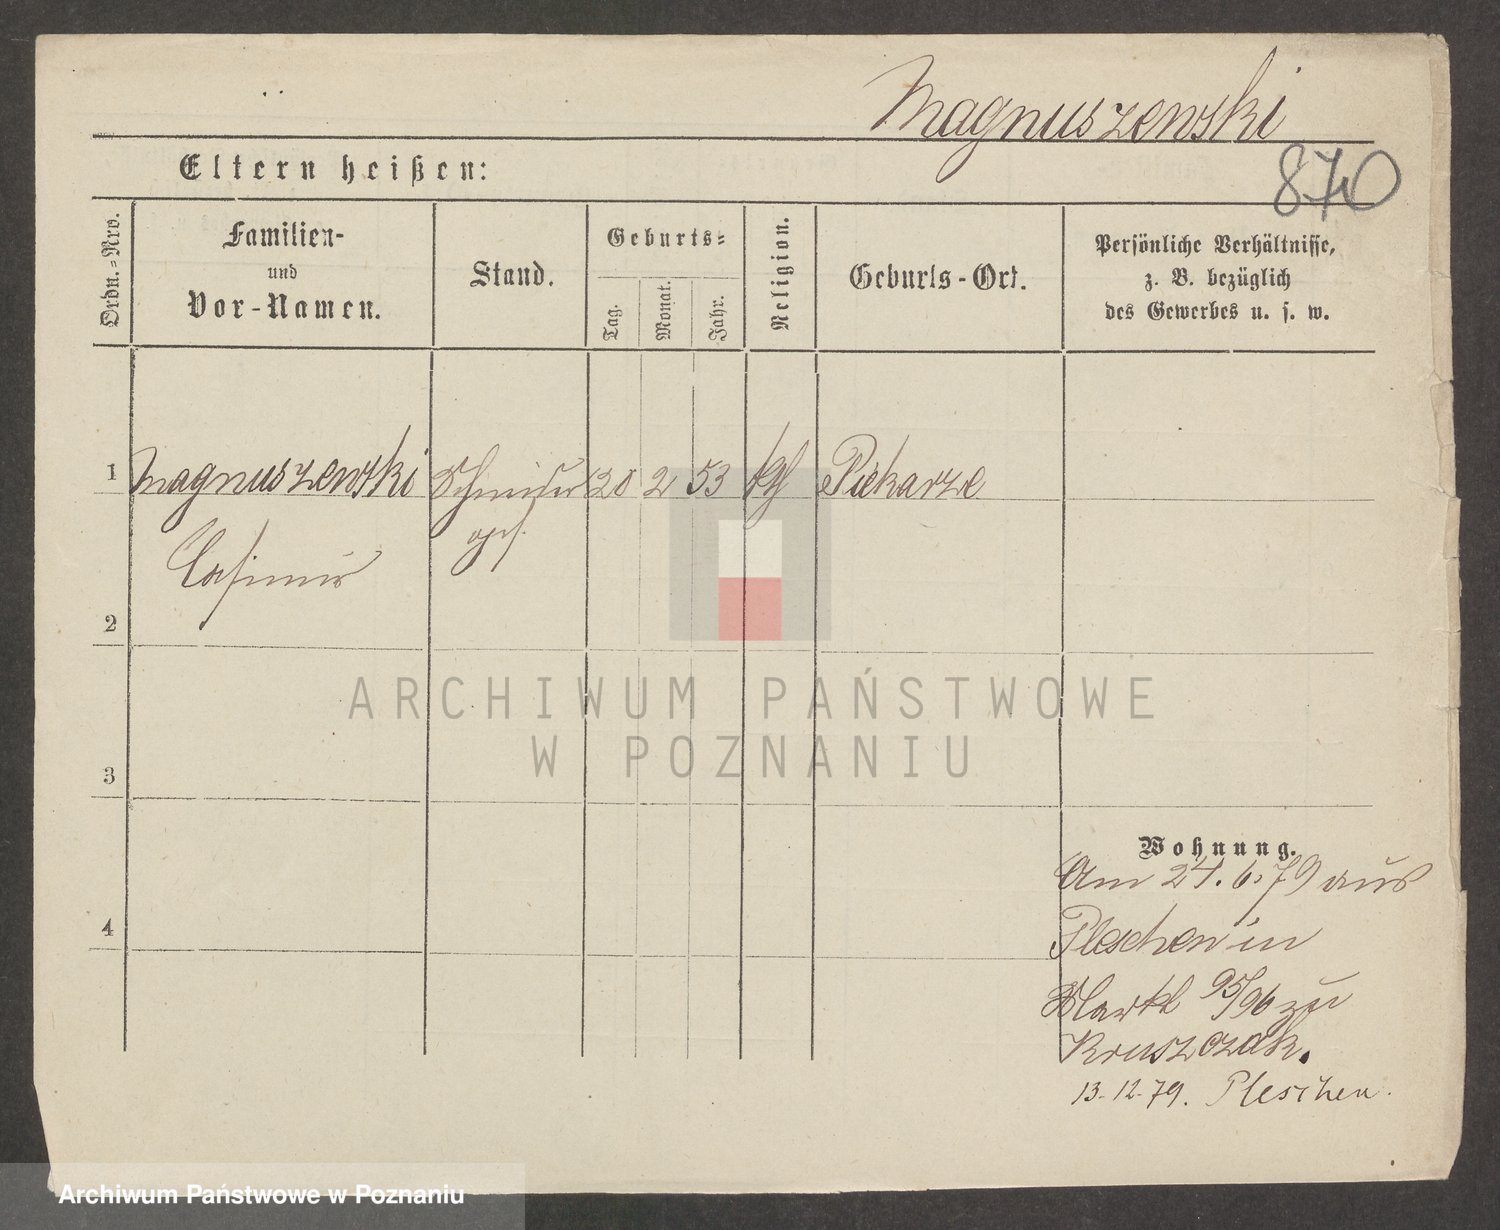 Magnuszewski
870
Eltern heißen:
Ordn.=Nro.
Familien-
und
Vor-Namen.
Stand.
Geburts=
Tag.
Monat.
Jahr.
Religion.
Geburts-Ort.
Persönliche Verhältnisse,
z. B. bezüglich
des Gewerbes u. s. w.
1 Magnuszewski 20 2 53 kth Piekarze
Casimir
2
3
4
Wohnung.
Am 24. 6. 79 aus
Pleschen in
Markt 95/96 zu
Kruszczak.
13-12-79. Pleschen.
ARCHIWUM PAŃSTWOWE
W POZNANIU
Archiwum Państwowe w Poznaniu